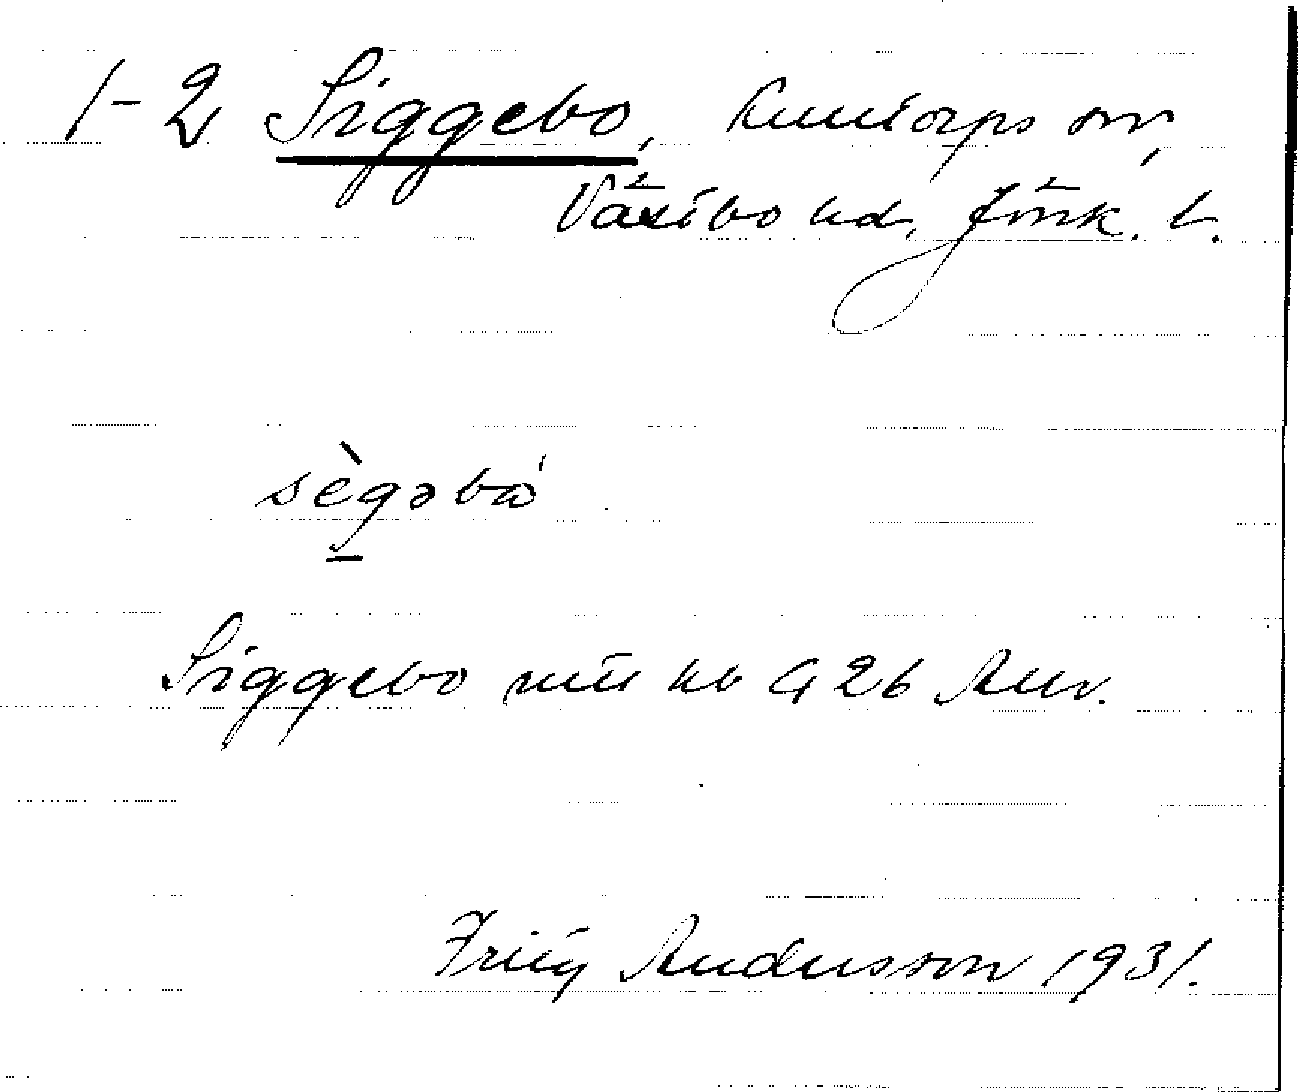 1-2 Siggebo, Kulltorps sn,
Västbo hd, Jönk. l.
sègəbω
Siggebo mtl kb G 26 Anv.
Fritz Andersson 1931.